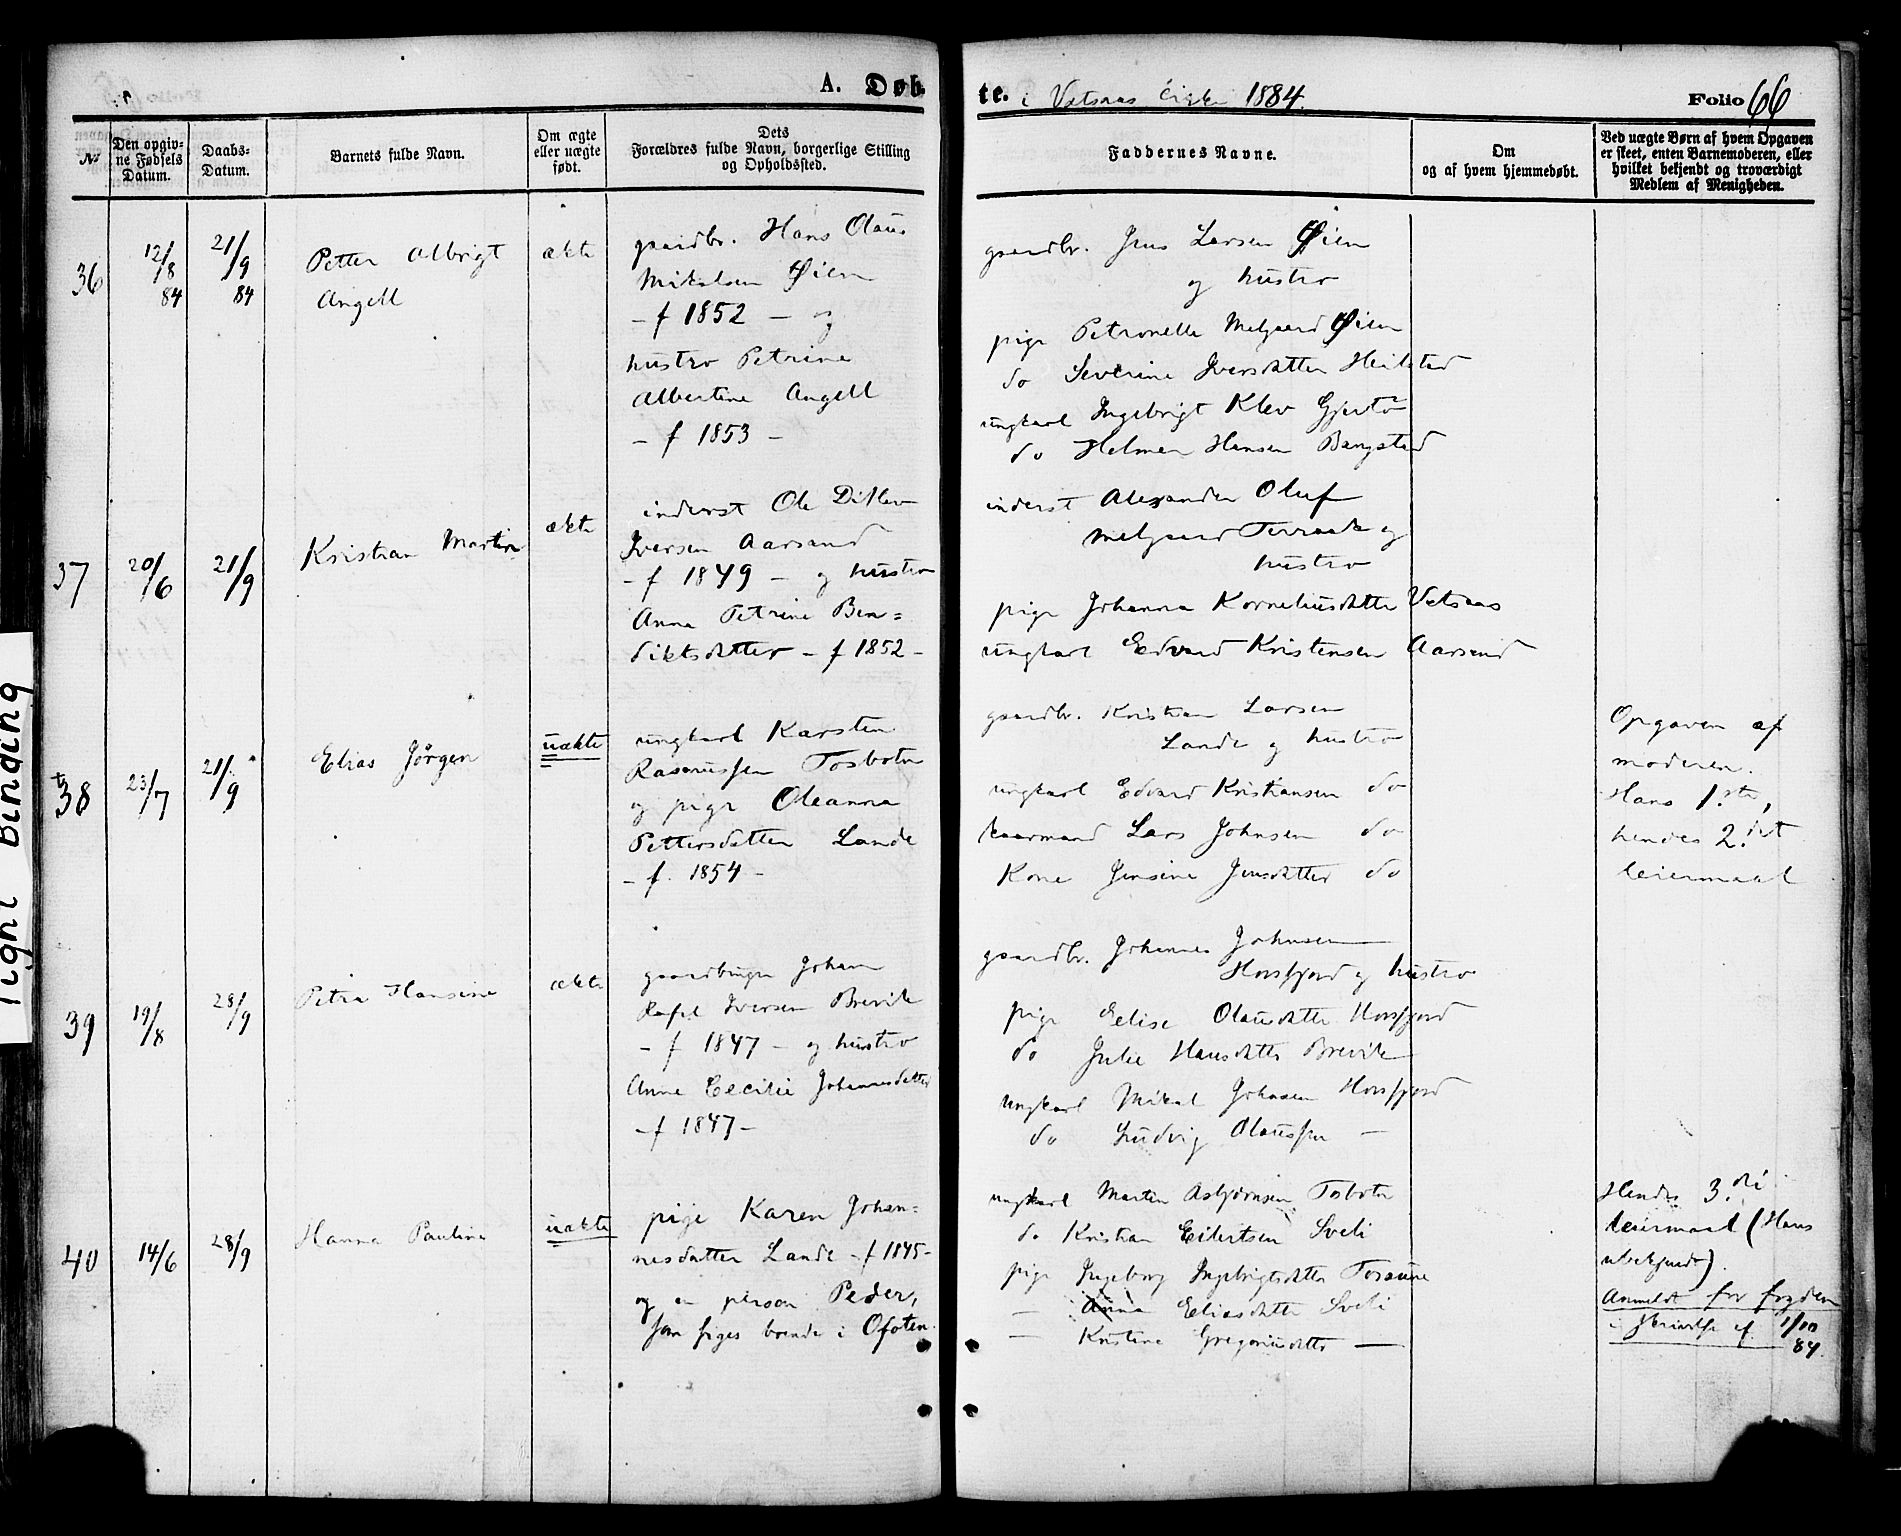 A. Døb
te. i Vatsaas 1884.
Folio 66
No
Den opgiv-
ne Fødsels
Datum.
Daabs-
Datum.
Barnets fulde Navn.
Om ægte
eller uægte
født.
Dets
Forældres fulde Navn, borgerlige Stilling
og Opholdssted.
Faddernes Navne.
Om
og af hvem hjemmedøbt.
Ved uægte Børn af hvem Opgaven
er skeet, enten Barnemoderen, eller
hvilket bekjendt og troværdigt
Medlem af Menigheden.
36
12/8
84
21/9
84
Petter Albrigt
Angell
ækte
gaardbr. Hans Olaus
Mikalsen Øien
- f 1852 - og
hustro Petrine
Albertine Angell
- f 1853 -
gaardbr. Jens Larsen Øien
og hustro
pige Petronelle Melgaard Øien
do Severine Iversdatter Heilstad
ungkarl Ingebrigt Klev Gjertø
do Helmer Hansen Bangstad
37
20/6
21/9
Kristian Martin
ækte
inderst Ole Ditlev
Iversen Aarsand
- f 1849 - og hustro
Anna Petrine Ben=
diktsdatter - f 1852 -
inderst Alexander Oluf
Melgaard Terraak og
hustro
pige Johanna Korneliusdatter Vatsaas
ungkarl Edvard Kristensen Aarsand
38
23/7
21/9
Elias Jørgen
uækte
ungkarl Karsten
Rasmussen Tosbotn
og pige Oleanna
Pettersdatter Lande
- f. 1854 -
gaardbr. Kristian Larsen
Lande og hustro
ungkarl Edvard Kristiansen do
kaarmand Lars Johnsen do
Kone Jensine Jensdatter do
Opgaven af
moderen.
Hans 1.ste,
hendes 2.det
leiermaal
39
19/8
28/9
Petra Hansine
ækte
gaardbruger Johan
Rafel Iversen Brevik
- f 1847 - og hustro
Anne Cecilie Johannesdatter
- f 1847 -
gaardbr. Johannes Johnsen
Horsfjord og hustro
pige Eelise Olausdatter Horsfjord
do Julie Hansdatter Brevik
ungkarl Mikal Johnsen Horsfjord
do Ludvig Olaussen —
40
14/6
28/9
Hanna Pauline
uækte
pige Karen Johan=
nesdatter Lande - f 1845 -
og en person Peder,
som siges boende i Ofoten.
ungkarl Martin Asbjørnsen Tosbotn
do Kristian Eilertsen Sveli
pige Ingeborg Ingebrigtsdatter Tosaune
— Anna Eliasdatter Sveli
— Kristine Gregoriusdatter —
Hendes 3.die
leiermaal (Hans
ubekjendt).
Anmeldt for fogden
i skrivelse af 1/10
84.
Tight Binding